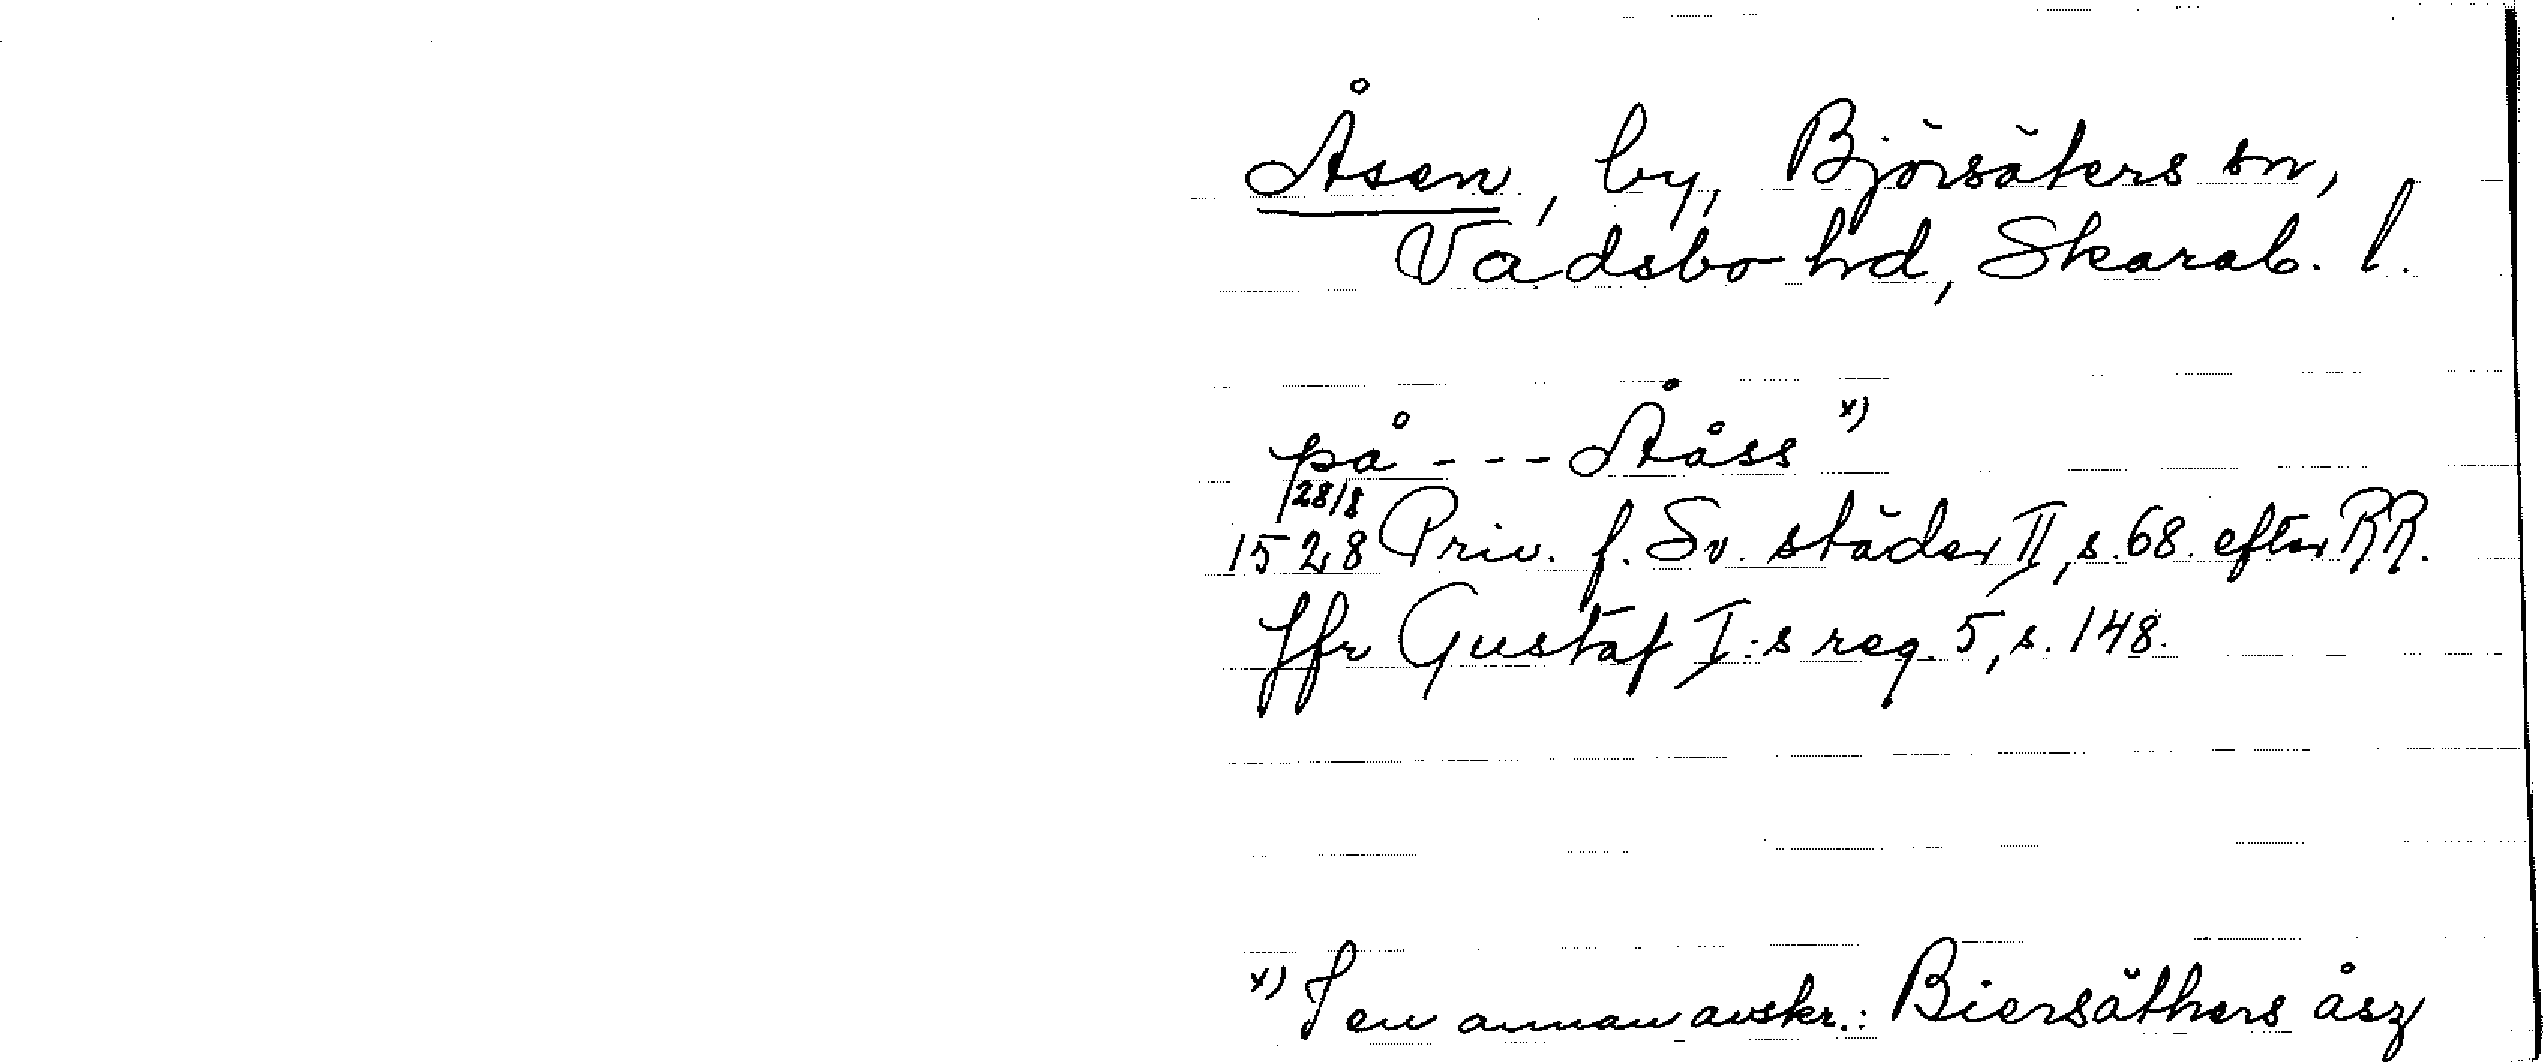 Åsen, by, Björsäters sn,
Vadsbo hd, Skarab. l.
på --- Ååss x)
28/8
1528 Priv. f. Sv. städer II, s. 68. efter RR.
Jfr Gustaf I:s reg. 5, s. 148.
x) I en annan avskr.: Biersäthers åsz